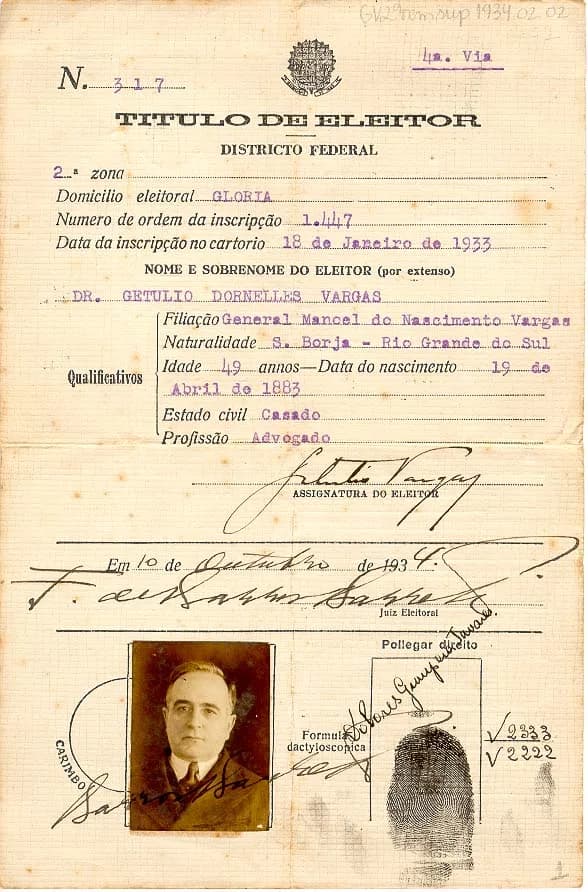 GV 29 rem.sup 1934.02.02
4a. Via
N. 317
TITULO DE ELEITOR
DISTRICTO FEDERAL
2ª zona
Domicilio eleitoral GLORIA
Numero de ordem da inscripção 1.447
Data da inscripção no cartorio 18 de Janeiro de 1933
NOME E SOBRENOME DO ELEITOR (por extenso)
DR. GETULIO DORNELLES VARGAS
Qualificativos
Filiação General Manoel do Nascimento Vargas
Naturalidade S. Borja - Rio Grande do Sul
Idade 49 annos—Data do nascimento 19 de
Abril de 1883
Estado civil Casado
Profissão Advogado
Getulio Vargas
ASSIGNATURA DO ELEITOR
Em 10 de Outubro de 1934.
F. de Barros Barreto
Juiz Eleitoral
Pollegar direito
CARIMBO
Formula dactyloscopica
Barros Barreto
√ 2333
V 2222